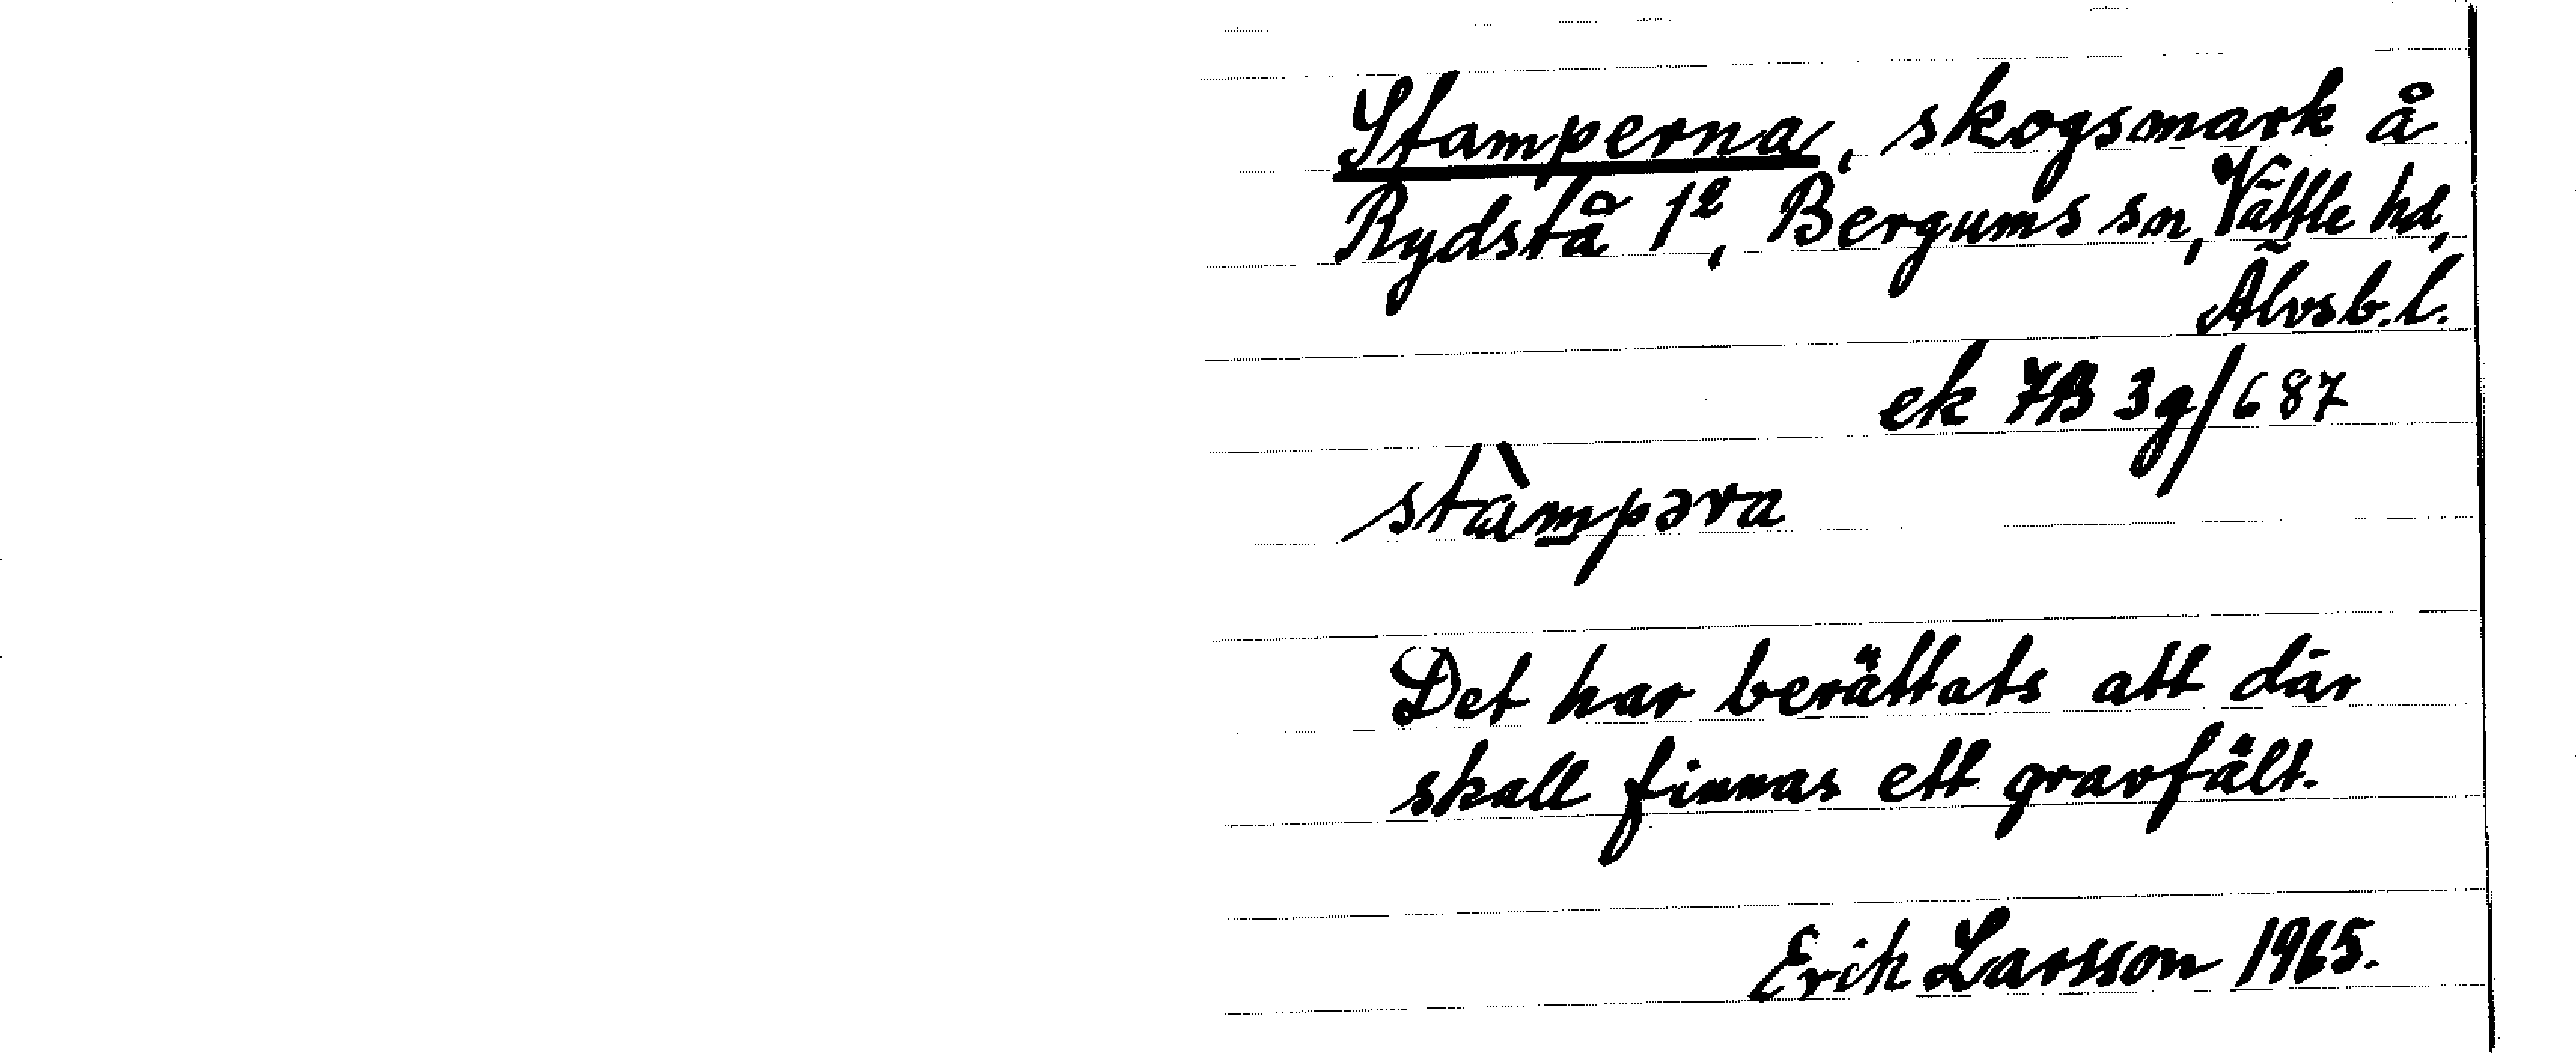 Stamperna, skogsmark å
Rydstå 1², Bergums sn, Vättle hd,
Älvsb. l.
ek 7B 3g/687
stàm̱pəra
Det har berättats att där
skall finnas ett gravfält.
Erik Larsson 1965.